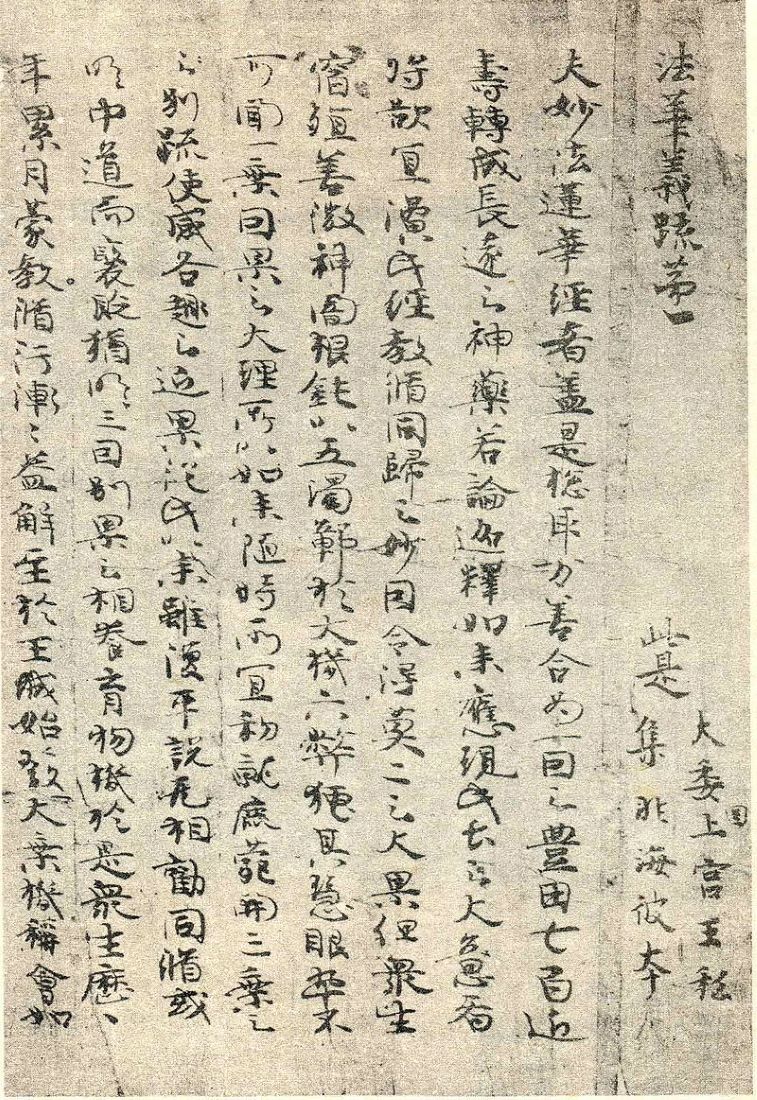 法華義疏第一
此是
大委國上宮王私
集非海彼本
夫妙法蓮華經者盖是惣取万善合為一因之豊田七百近
壽轉成長遠之神藥若論迦釋如来應現此土之大意者
将欲宜演此經教脩同歸之妙因令得莫二之大果但衆生
宿殖善微神闇根鈍以五濁鄣於大機六弊掩其慧眼卒不
可聞一乗因果之大理所以如来随時所宜初就鹿菀開三乗之
之別疏使感各趣之近果從此以来雖復平説无相勸同脩或
明中道而襃貶猶明三因別果之相養育物機於是衆生歷〻
年累月蒙教脩行漸〻益解至於王城始發大乗機稱會如